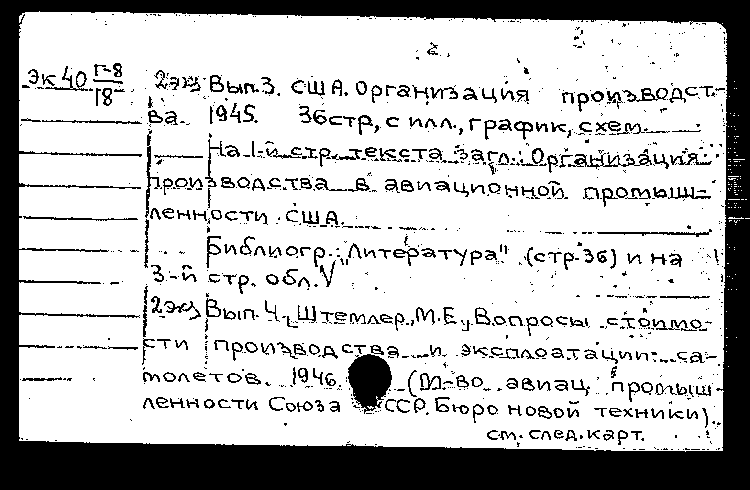 2.
Эк 40 Г-8/18 2эк3 Вып.3. США. Организация производст-
ва. 1945. 36стр, с илл., график, схем.
На I-й стр. текста загл.: Организация
производства в авиационной промыш-
ленности США.
Библиогр.: "Литература" (стр. 36) и на
3-й стр. обл. V
2эк3 Вып. 4., Штемлер, М.Е., Вопросы стоимо-
сти производства и эксплоатации са-
молетов. 1946. (М-во авиац. промыш-
ленности Союза ССР. Бюро новой техники).
см. след. карт.